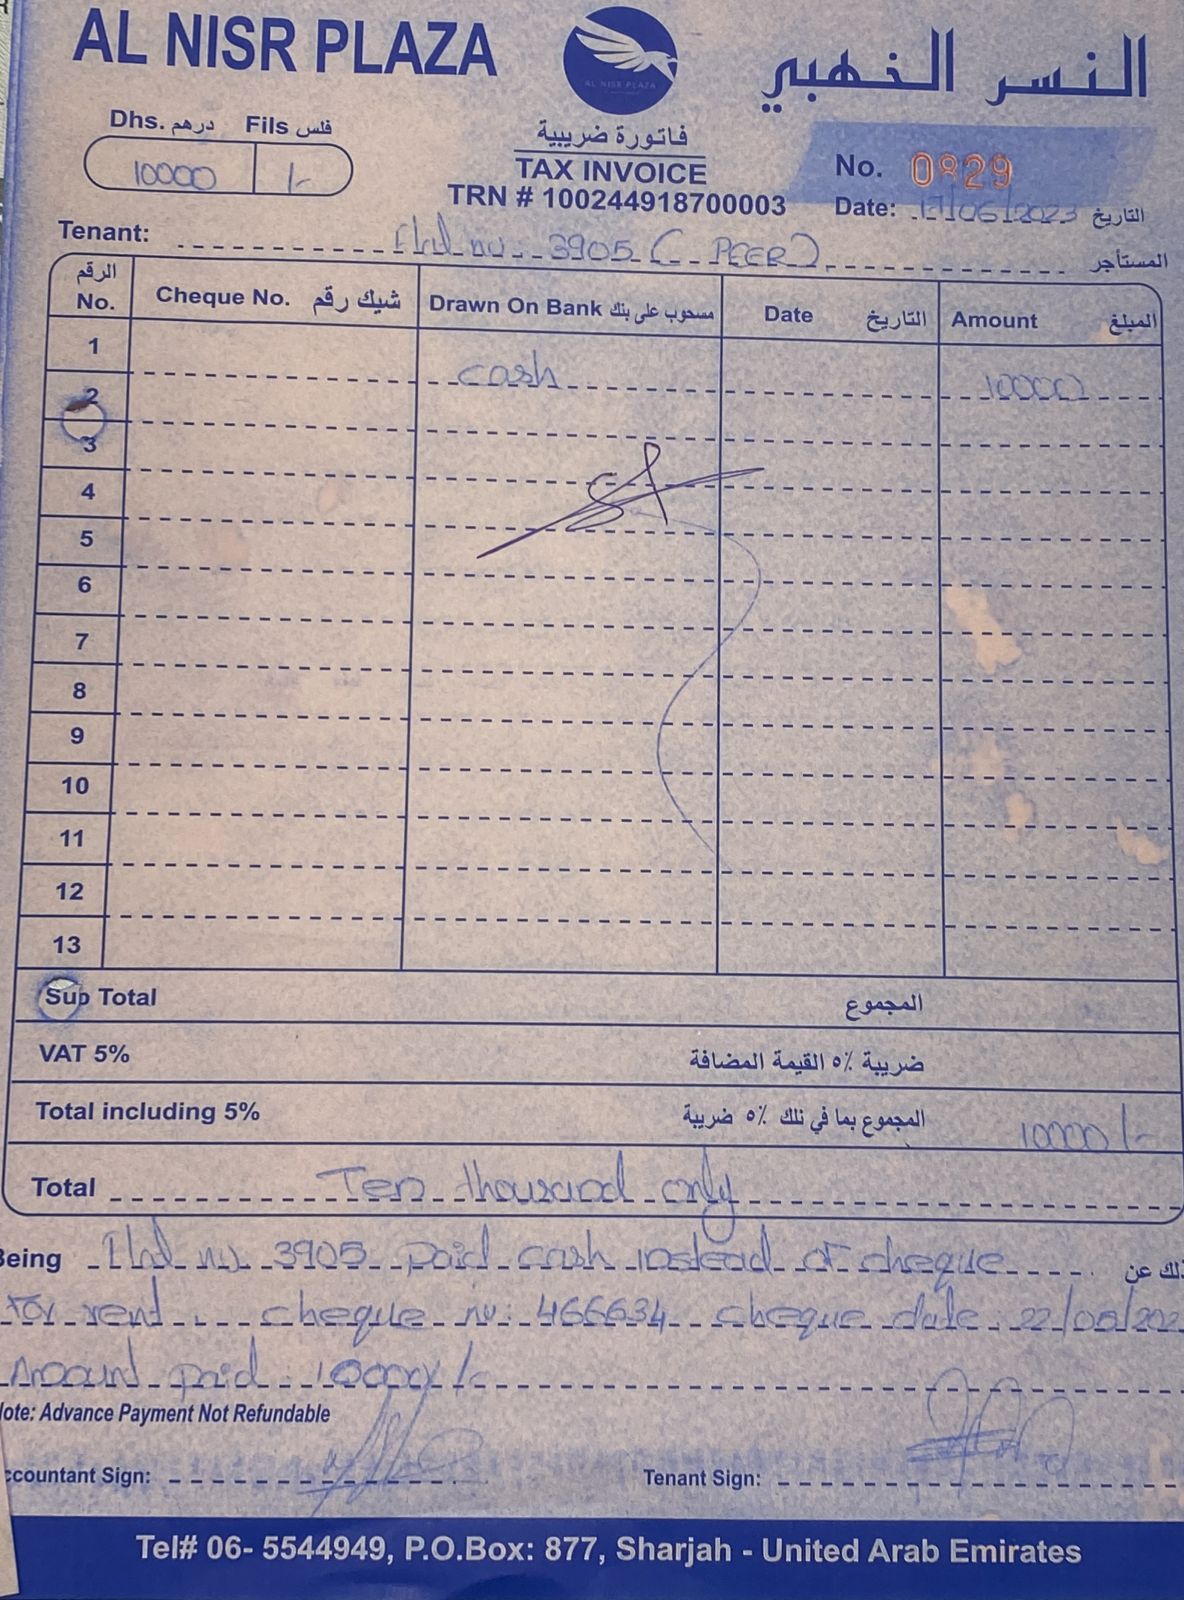 AL NISR PLAZA
النسر الذهبي
AL NISR PLAZA
Dhs. درهم Fils فلس
10000 /-
فاتورة ضريبية
TAX INVOICE
TRN # 100244918700003
No. 0829
Date: 17/06/2023 التاريخ
Tenant: Flat no: 3905 (PEER) المستأجر
الرقم No. Cheque No. شيك رقم Drawn On Bank مسحوب على بنك Date التاريخ Amount المبلغ
1 cash 10000
2
3
4
5
6
7
8
9
10
11
12
13
Sup Total المجموع
VAT 5% ضريبة ٥٪ القيمة المضافة
Total including 5% المجموع بما في تلك ٥٪ ضريبة 10000/-
Total Ten thousand only
Being Flat no 3905 paid cash instead of cheque ذلك عن
for rent. cheque no: 466634 cheque date
Amount paid 10000/-
Note: Advance Payment Not Refundable
Accountant Sign: Tenant Sign:
Tel# 06- 5544949, P.O.Box: 877, Sharjah - United Arab Emirates